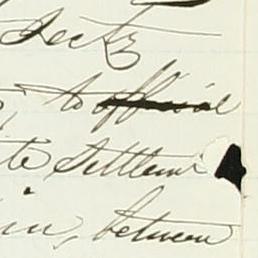 Secty
to official
te Settlem
in, between